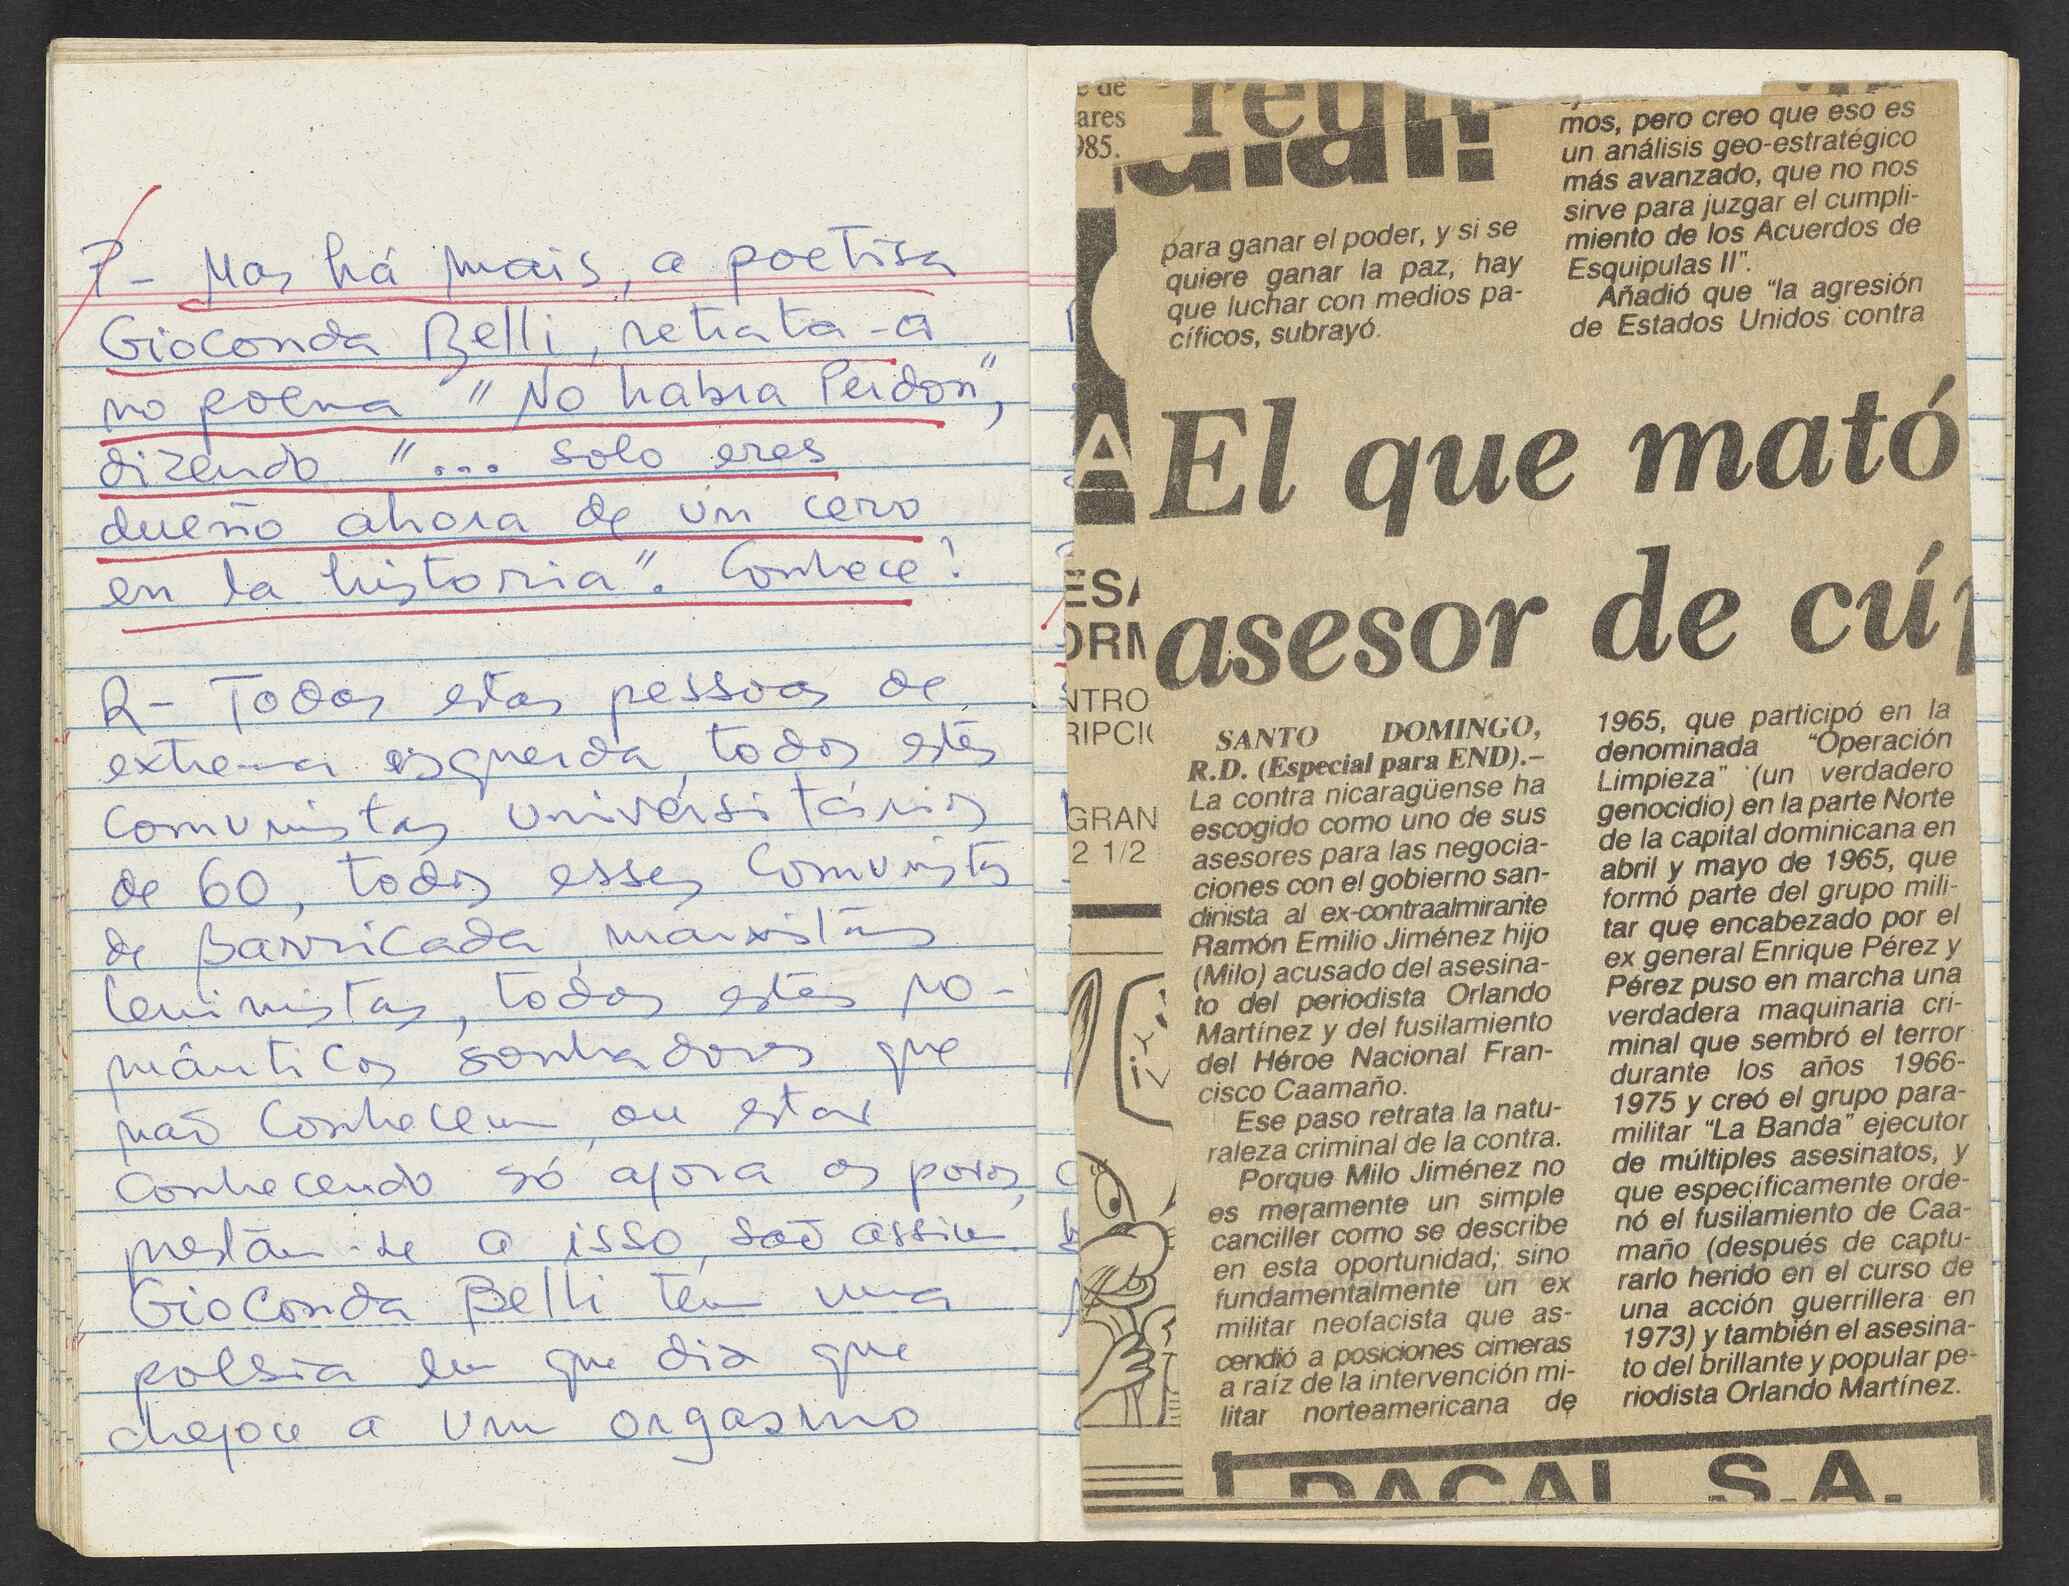 P- Mas há mais, a poetisa
Gioconda Belli, retrata-a
no poema "No habra Perdon",
dizendo "... solo eres
dueño ahora de un cero
en la historia". Conhece?
R- Todas estas pessoas de
extrema esquerda, todos estes
comunistas universitários
de 60, todos esses comunistas
de Barricada, marxistas
leninistas, todos estes ro-
mânticos sonhadores que
não conhecem, ou estar
conhecendo só agora os povos,
prestam-se a isso, são assim
Gioconda Belli tem uma
poesia em que diz que
chegou a um orgasmo
e de
ares
985.
A
ESA
ORM
NTRO
RIPCI
GRAN
2 1/2
dial!
para ganar el poder, y si se
quiere ganar la paz, hay
que luchar con medios pa-
cíficos, subrayó.
mos, pero creo que eso es
un análisis geo-estratégico
más avanzado, que no nos
sirve para juzgar el cumpli-
miento de los Acuerdos de
Esquipulas II".
Añadió que "la agresión
de Estados Unidos contra
El que mató
asesor de cúp
SANTO DOMINGO,
R.D. (Especial para END).–
La contra nicaragüense ha
escogido como uno de sus
asesores para las negocia-
ciones con el gobierno san-
dinista al ex-contraalmirante
Ramón Emilio Jiménez hijo
(Milo) acusado del asesina-
to del periodista Orlando
Martínez y del fusilamiento
del Héroe Nacional Fran-
cisco Caamaño.
Ese paso retrata la natu-
raleza criminal de la contra.
Porque Milo Jiménez no
es meramente un simple
canciller como se describe
en esta oportunidad; sino
fundamentalmente un ex
militar neofacista que as-
cendió a posiciones cimeras
a raíz de la intervención mi-
litar norteamericana de
1965, que participó en la
denominada "Operación
Limpieza" (un verdadero
genocidio) en la parte Norte
de la capital dominicana en
abril y mayo de 1965, que
formó parte del grupo mili-
tar que encabezado por el
ex general Enrique Pérez y
Pérez puso en marcha una
verdadera maquinaria cri-
minal que sembró el terror
durante los años 1966-
1975 y creó el grupo para-
militar "La Banda" ejecutor
de múltiples asesinatos, y
que específicamente orde-
nó el fusilamiento de Caa-
maño (después de captu-
rarlo herido en el curso de
una acción guerrillera en
1973) y también el asesina-
to del brillante y popular pe-
riodista Orlando Martínez.
DACAL S.A.